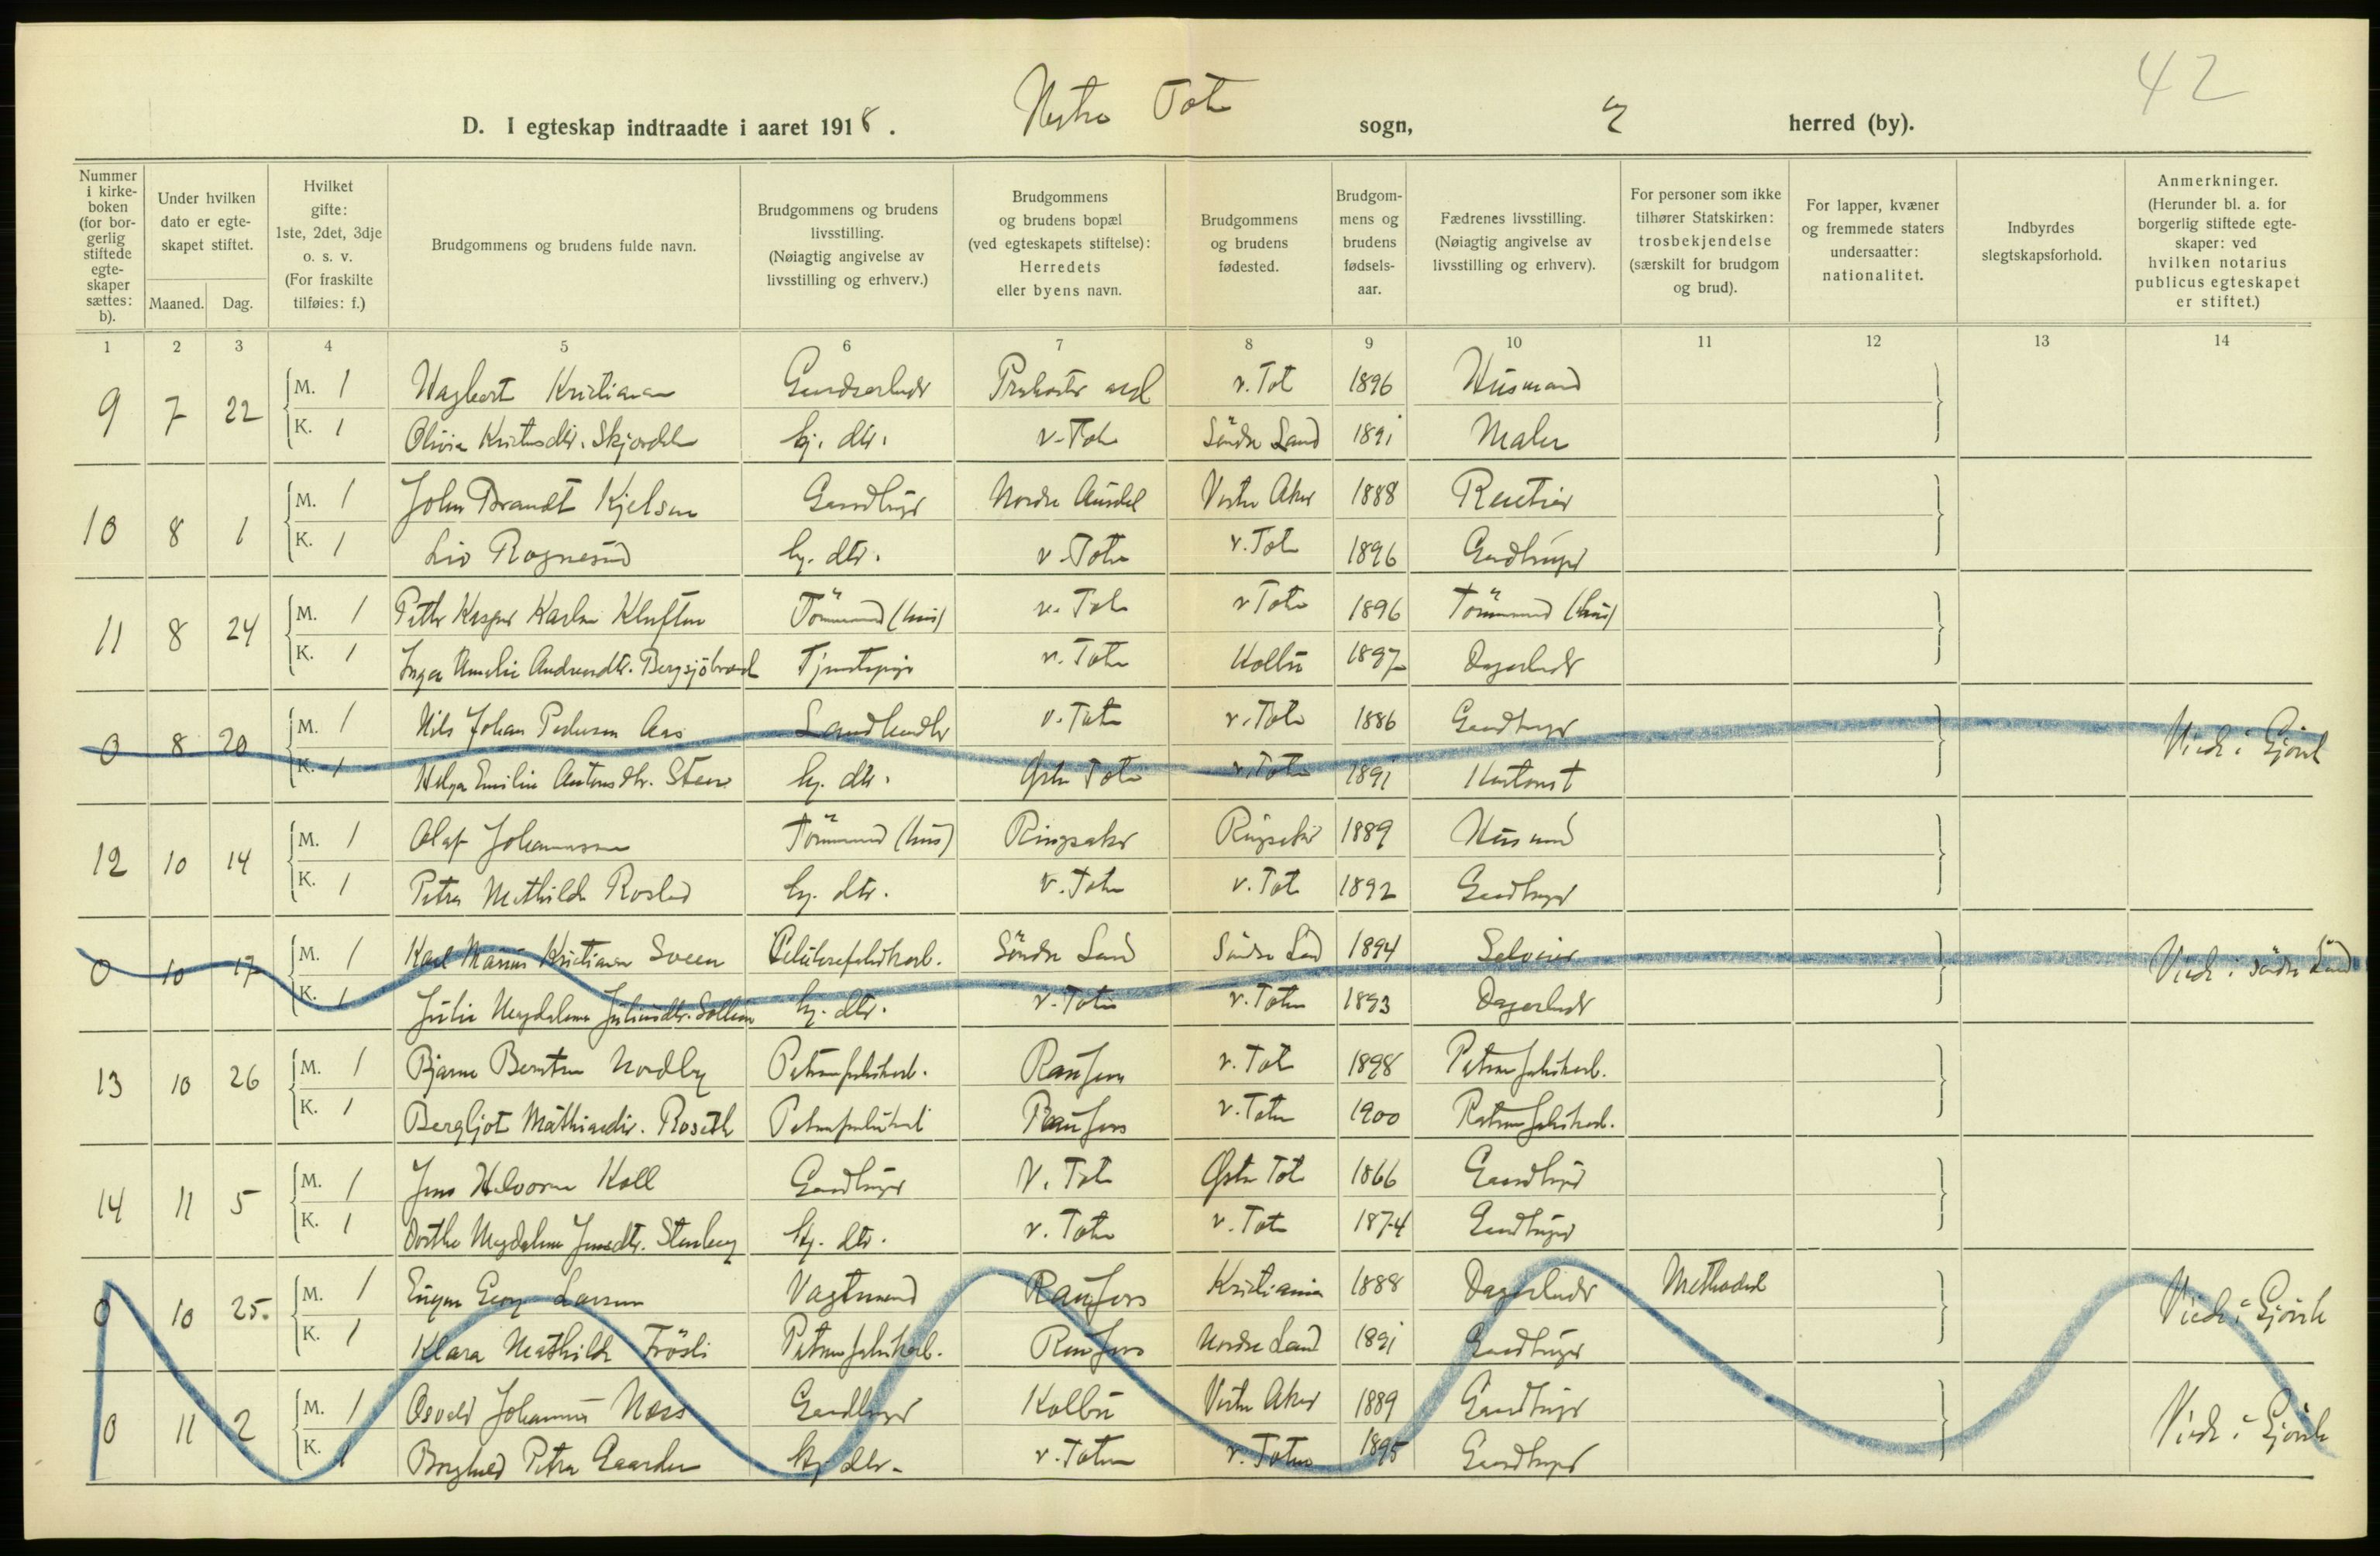 42
D. I egteskap indtraadte i aaret 1918. Vestre Toten sogn, herred (by).
Nummer i kirkeboken (for borgerlig stiftede egteskaper sættes: b).
Under hvilken dato er egteskapet stiftet.
Maaned. Dag.
Hvilket gifte: 1ste, 2det, 3dje o. s. v. (For fraskilte tilføies: f.)
Brudgommens og brudens fulde navn.
Brudgommens og brudens livsstilling. (Nøiagtig angivelse av livsstilling og erhverv.)
Brudgommens og brudens bopæl (ved egteskapets stiftelse): Herredets eller byens navn.
Brudgommens og brudens fødested.
Brudgommens og brudens fødselsaar.
Fædrenes livsstilling. (Nøiagtig angivelse av livsstilling og erhverv).
For personer som ikke tilhører Statskirken: trosbekjendelse (særskilt for brudgom og brud).
For lapper, kvæner og fremmede staters undersaatter: nationalitet.
Indbyrdes slegtskapsforhold.
Anmerkninger. (Herunder bl. a. for borgerlig stiftede egteskaper: ved hvilken notarius publicus egteskapet er stiftet.)
1 2 3 4 5 6 7 8 9 10 11 12 13 14
9 7 22 M. 1 Hagbart Kristiansen Gaardsarbeider v. Tot 1896 Husmand
K. 1 Olivia Kristiansdtr. Skjerdal hj. dtr. v. Toten Søndre Land 1891 Maler
10 8 1 M. 1 John Brandt Kjelsen Gaardbruger Nordre Aurdal Vestre Aker 1888 Rentier
K. 1 Liv Rognerud hj. dtr. v. Toten v. Toten 1896 Gaardbruger
11 8 24 M. 1 Petter Kasper Karlsen Kluften Tømmermand (hus) v. Toten v. Toten 1896 Tømmermand (hus)
K. 1 Inga Amalie Andreasdtr. Bergsjøbraad Tjenestepige v. Toten Kolbu 1897 Dagarbeider
0 8 20 M. 1 Nils Johan Pedersen Aas Landhandler v. Toten v. Toten 1886 Gaardbruger Viede i Gjøvik
K. 1 Helga Emilie Antonsdtr. Steen hj. dtr. Østre Toten v. Toten 1891
12 10 14 M. 1 Olaf Johannessen Tømmermand (hus) Ringsaker Ringsaker 1889 Husmand
K. 1 Petra Mathilde Roslad hj. dtr. v. Toten v. Tot 1892 Gaardbruger
0 10 17 M. 1 Karl Marius Kristiansen Sveen Søndre Land Søndre Land 1894 Selveier Viede i Søndre Land
K. 1 Julie Magdalena Juliusdtr. Sollien hj. dtr. v. Toten v. Toten 1893 Dagarbeider
13 10 26 M. 1 Bjarne Berntsen Nordby Patronfabrikarb. Raufoss v. Tot 1898 Patronfabrikarb.
K. 1 Bergljot Mathiasdtr. Roseth Patronfabrikarb. Raufoss v. Toten 1900 Patronfabrikarb.
14 11 5 M. 1 Jens Halvorsen Koll Gaardbruger V. Toten Østre Toten 1866 Gaardbruger
K. 1 Dorthe Magdalene Jensdtr. Stenberg hj. dtr. v. Toten v. Toten 1874 Gaardbruger
0 10 25. M. 1 Eugen Georg Larsen Vagtmand Raufoss Kristiania 1888 Dagarbeider Methodist Viede i Gjøvik
K. 1 Klara Mathilde Frøsli Patronfabrikarb. Raufoss Nordre Land 1891 Gaardbruger
0 11 2 M. 1 Osvald Johannes Næss Gaardbruger Kolbu Vestre Aker 1889 Gaardbruger Viede i Gjøvik
K. 1 Borghild Petra Gaarder hj. dtr. v. Toten v. Toten 1895 Gaardbruger